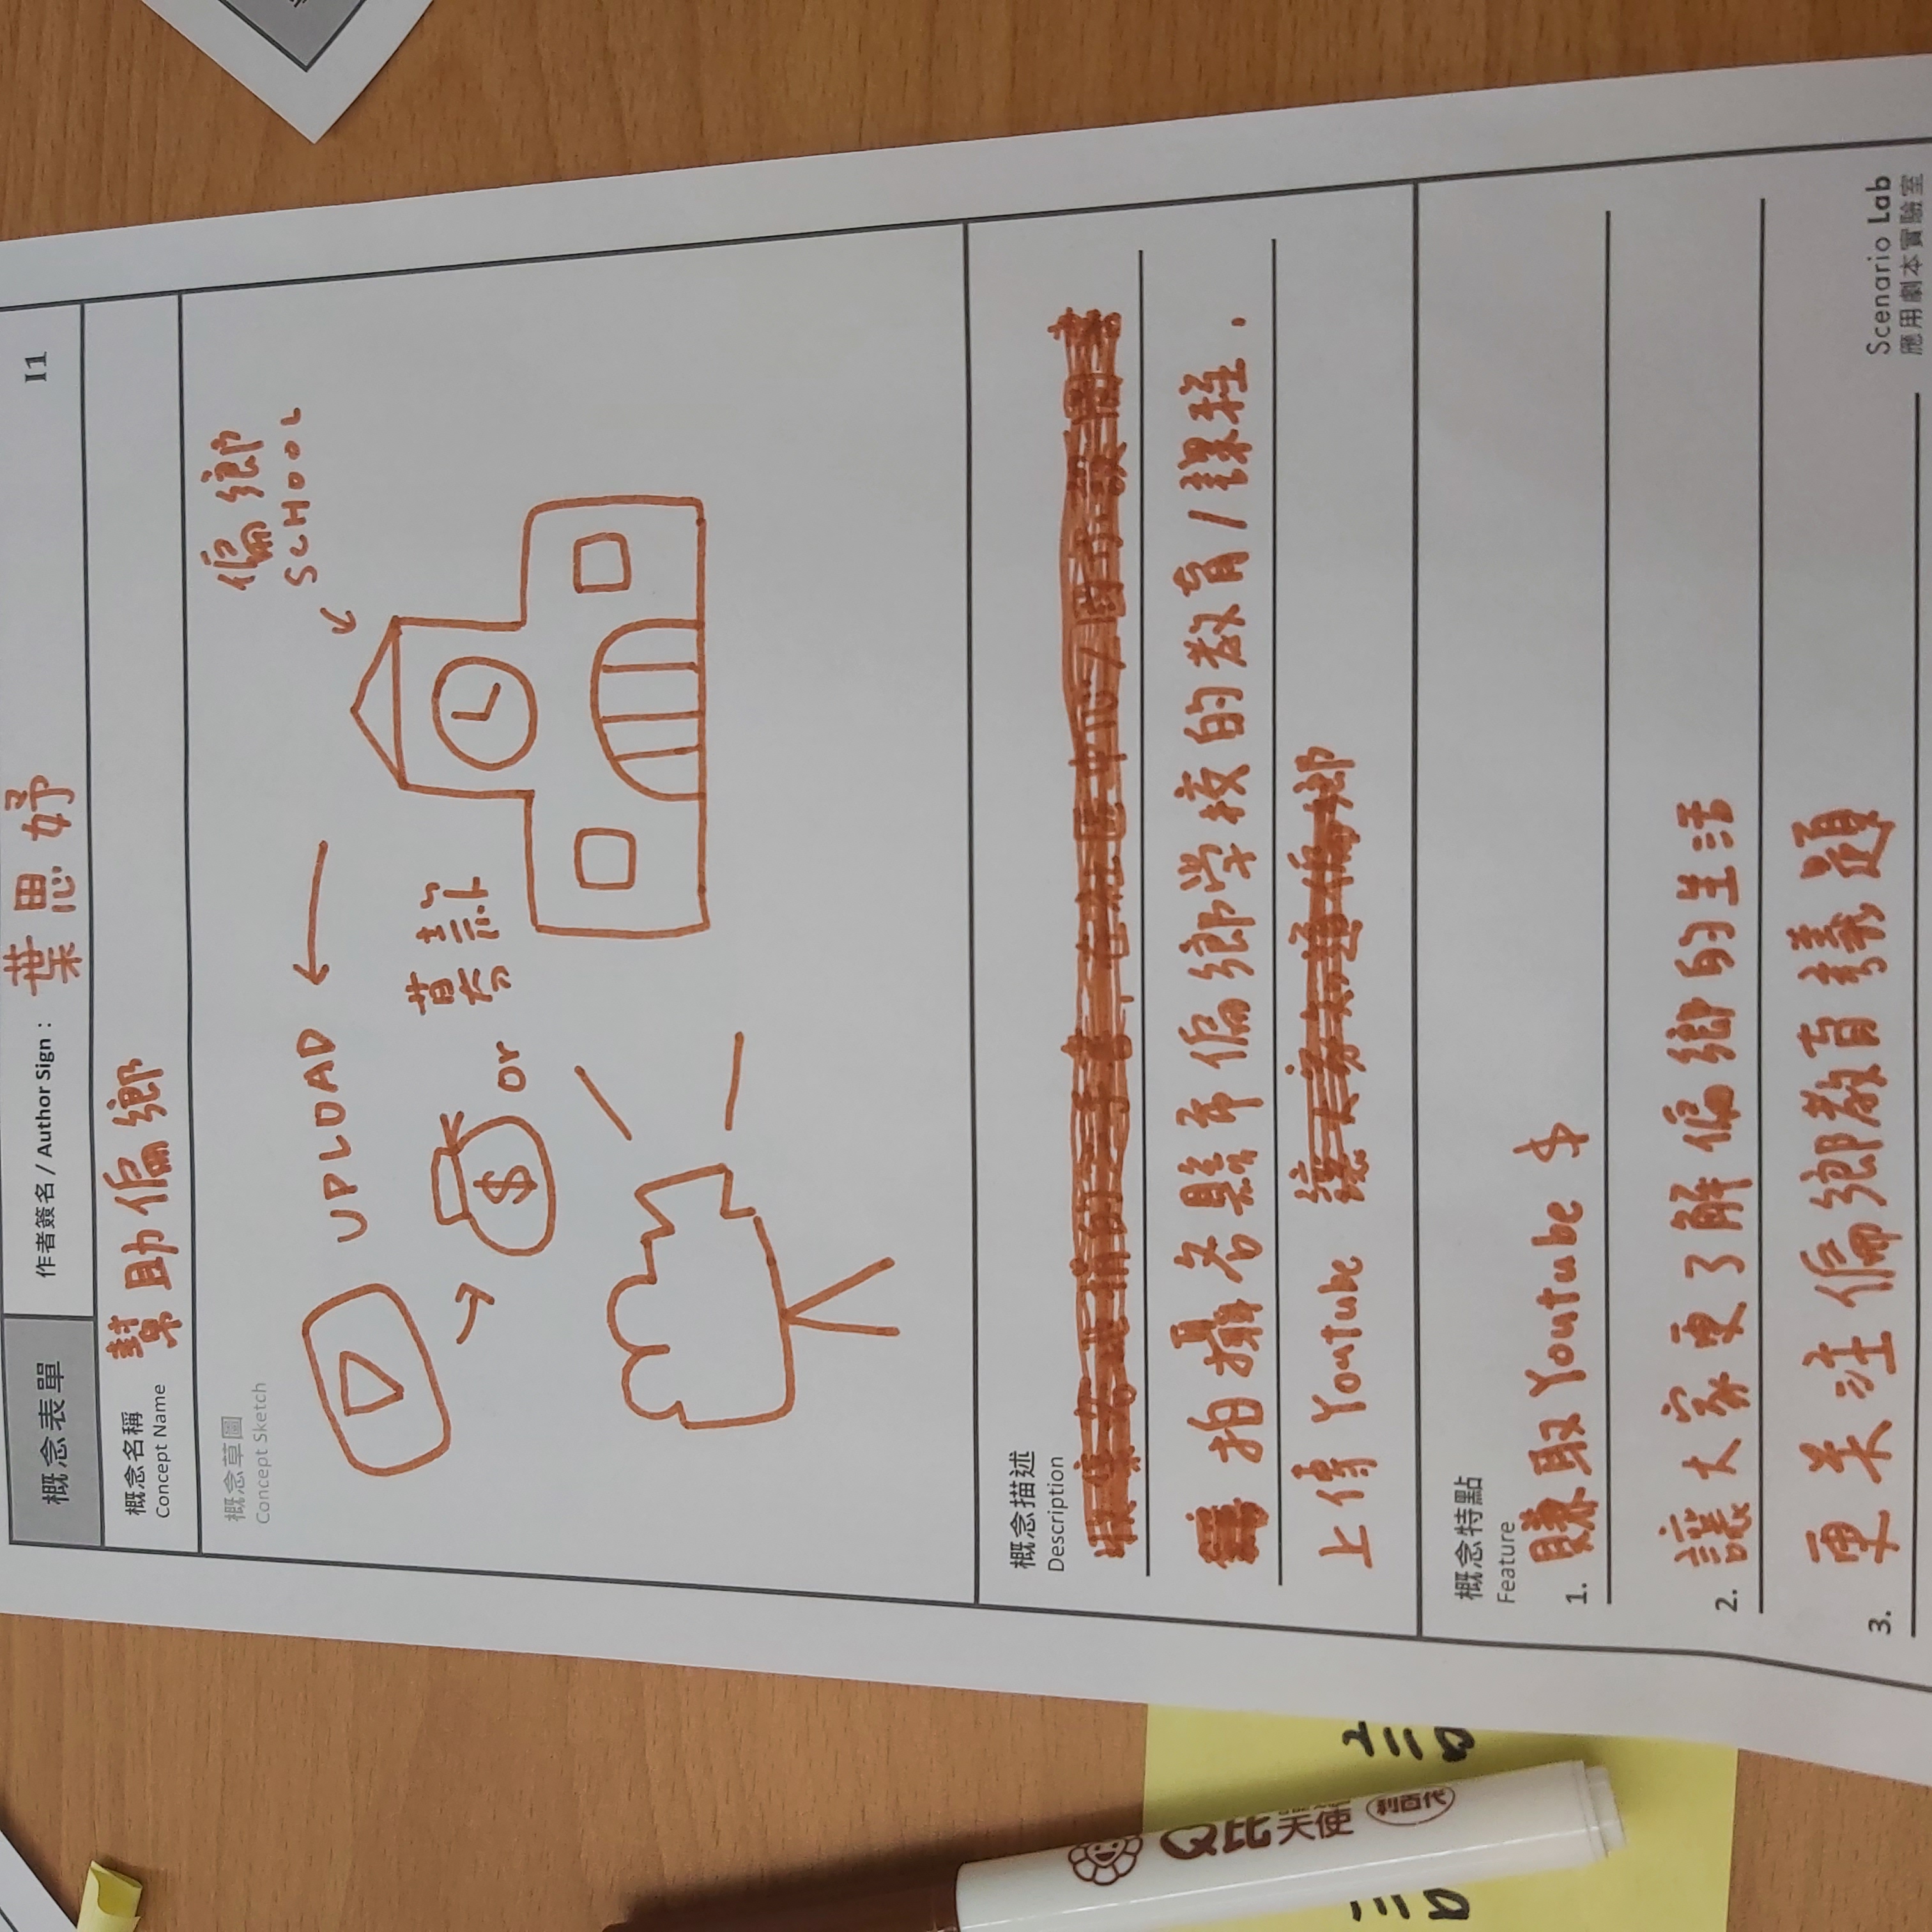 概念表單
作者簽名 / Author Sign : 葉思妤
I1
概念名稱
Concept Name
幫助偏鄉
概念草圖
Concept Sketch
偏鄉
SCHOOL
UPLOAD
$ or 募款
概念描述
Description
拍攝各縣市偏鄉学校的教育/課程.
上傳 Youtube 讓大家知道偏鄉
概念特點
Feature
1. 賺取 Youtube $
2. 讓大家更了解偏鄉的生活
3. 更关注偏鄉教育議題
Scenario Lab
應用劇本實驗室
Q比天使
利百代